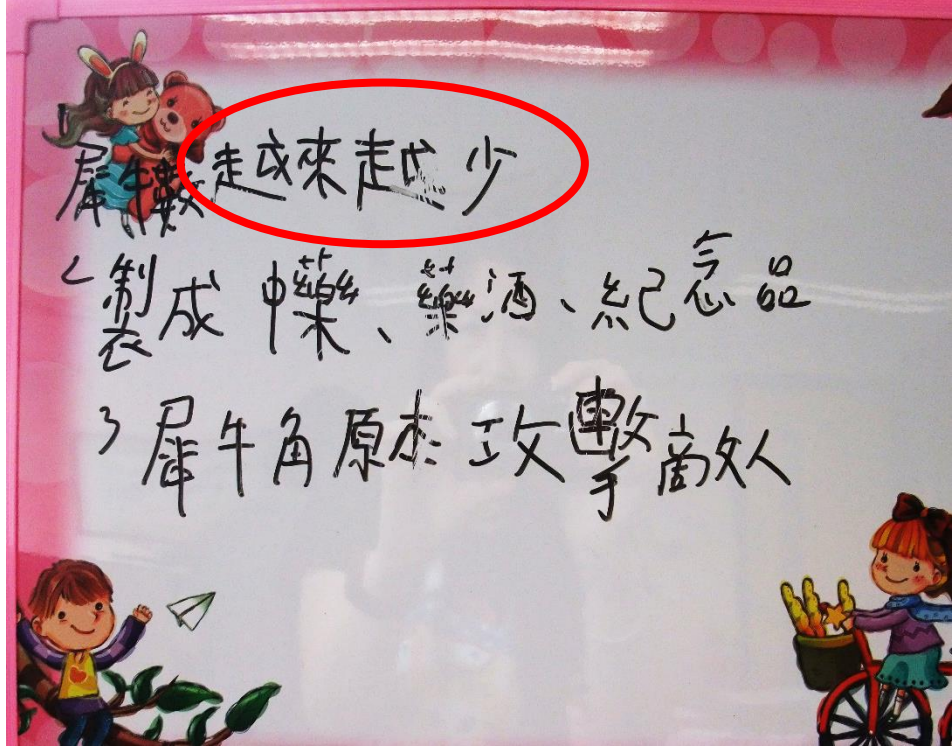 1 犀牛數越來越少
2 製成中藥、藥酒、紀念品
3 犀牛角原本攻擊敵人